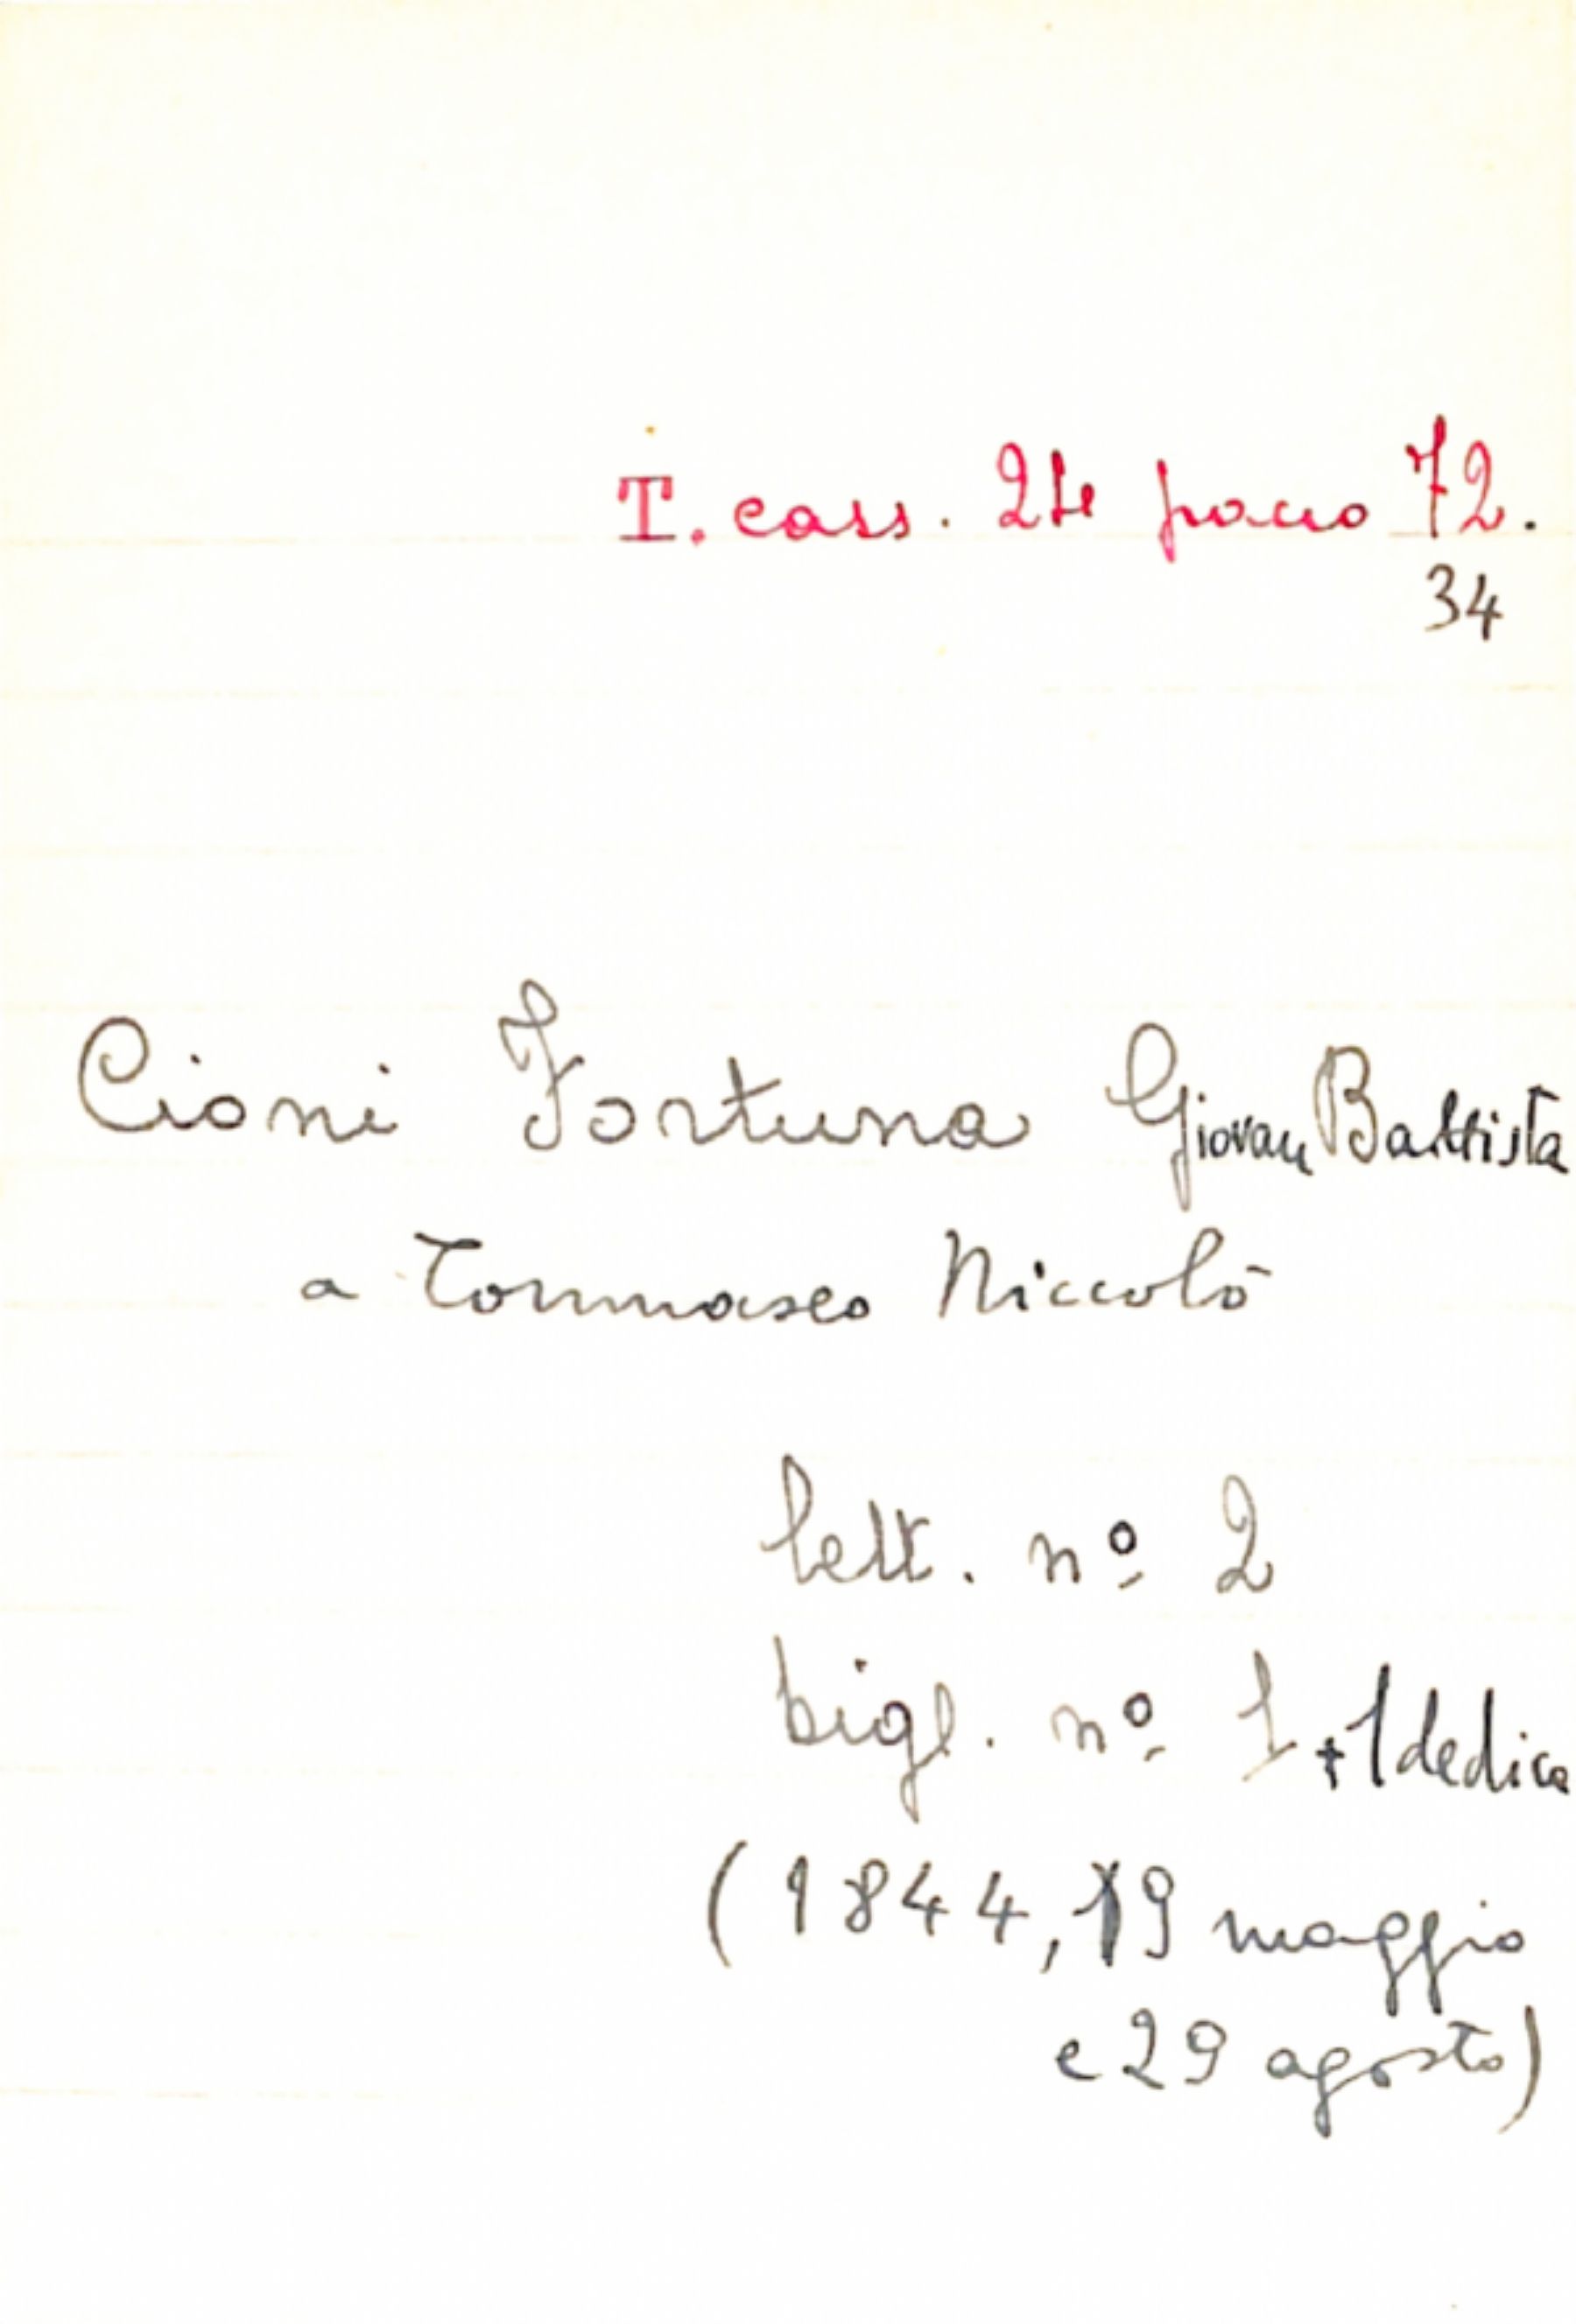 T. cass. 24 pacco 72.
34
Cioni Fortuna Giovan Battista
a Tommaseo Niccolò
lett. nº 2
bigl. nº 1 + 1 dedica
(1844, 19 maggio
e 29 agosto)